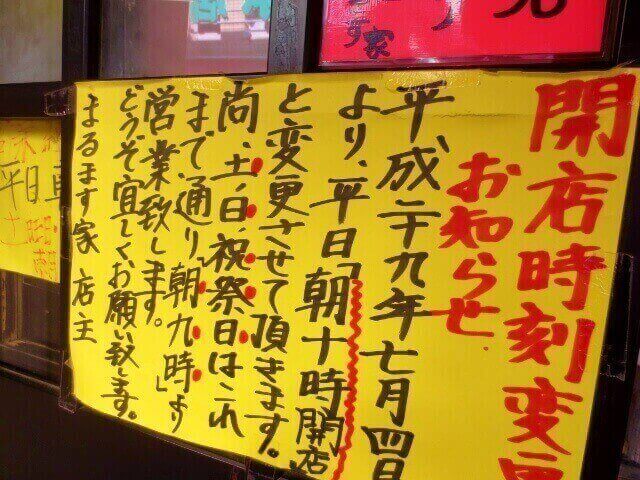 開店時刻変更
お知らせ.
平成二十九年七月四日
より、平日「朝十時開店」
と変更させて頂きます。
尚、土、日、祝祭日はこれ
まで通り「朝九時」より
営業致します。
どうぞ宜しくお願い致します。
まるます家 店主
ます家
平日